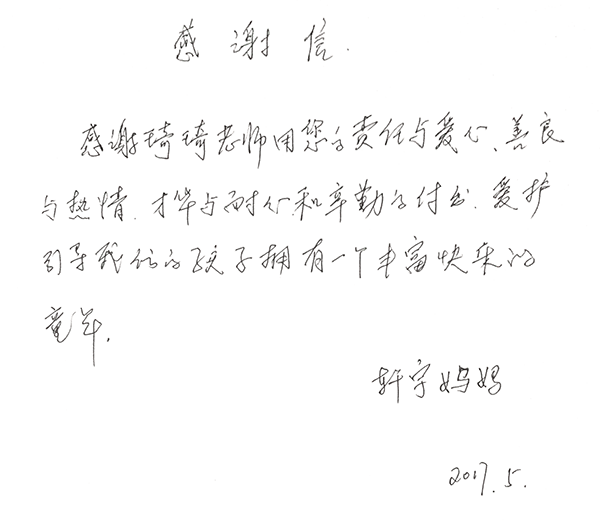 感谢信.
感谢琦琦老师用您的责任与爱心、善良
与热情.才华与耐心和辛勤的付出.爱护
引导我们的孩子拥有一个丰富快乐的
童年.
轩宇妈妈
2017.5.